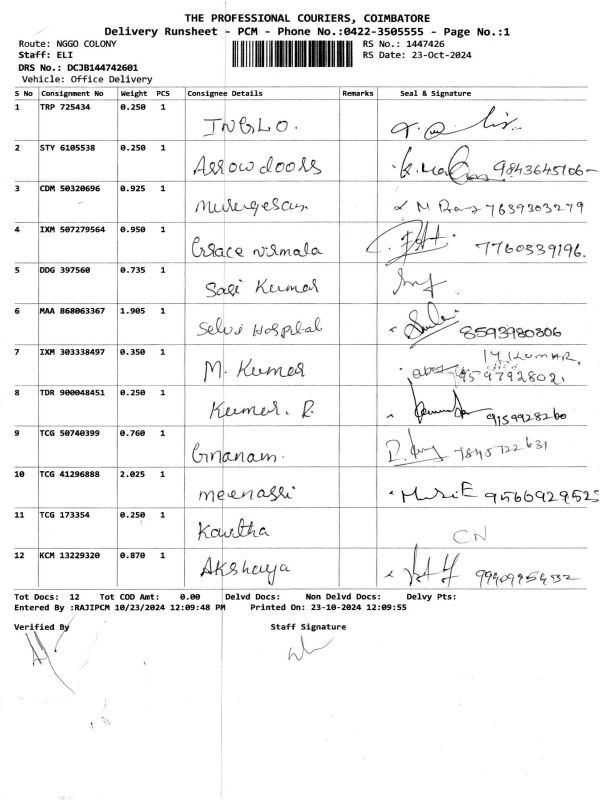 THE PROFESSIONAL COURIERS, COIMBATORE
Delivery Runsheet - PCM - Phone No.:0422-3505555 - Page No.:1
Route: NGGO COLONY RS No.: 1447426
Staff: ELI RS Date: 23-Oct-2024
DRS No.: DCJB144742601
Vehicle: Office Delivery
S No Consignment No Weight PCS Consignee Details Remarks Seal & Signature
1 TRP 725434 0.250 1 INGLO.
2 STY 6105538 0.250 1 Arrow doors 9843645106-
3 CDM 50320696 0.925 1 Murugesan 7639303279
4 IXM 507279564 0.950 1 Grace nirmala 7760539196.
5 DDG 397560 0.735 1 Sasi Kumar
6 MAA 868063367 1.905 1 Selvi Hospital 8593980806
7 IXM 303338497 0.350 1 M. Kumar M KUMAR.
9597928021
8 TDR 900048451 0.250 1 Kumar. R. 9159928260
9 TCG 50740399 0.760 1 Gnanam. 7845722631
10 TCG 41296888 2.025 1 meenassi 9566929525
11 TCG 173354 0.250 1 Kavitha CN
12 KCM 13229320 0.870 1 AKshaya
Tot Docs: 12 Tot COD Amt: 0.00 Delvd Docs: Non Delvd Docs: Delvy Pts:
Entered By :RAJIPCM 10/23/2024 12:09:48 PM Printed On: 23-10-2024 12:09:55
Verified By Staff Signature